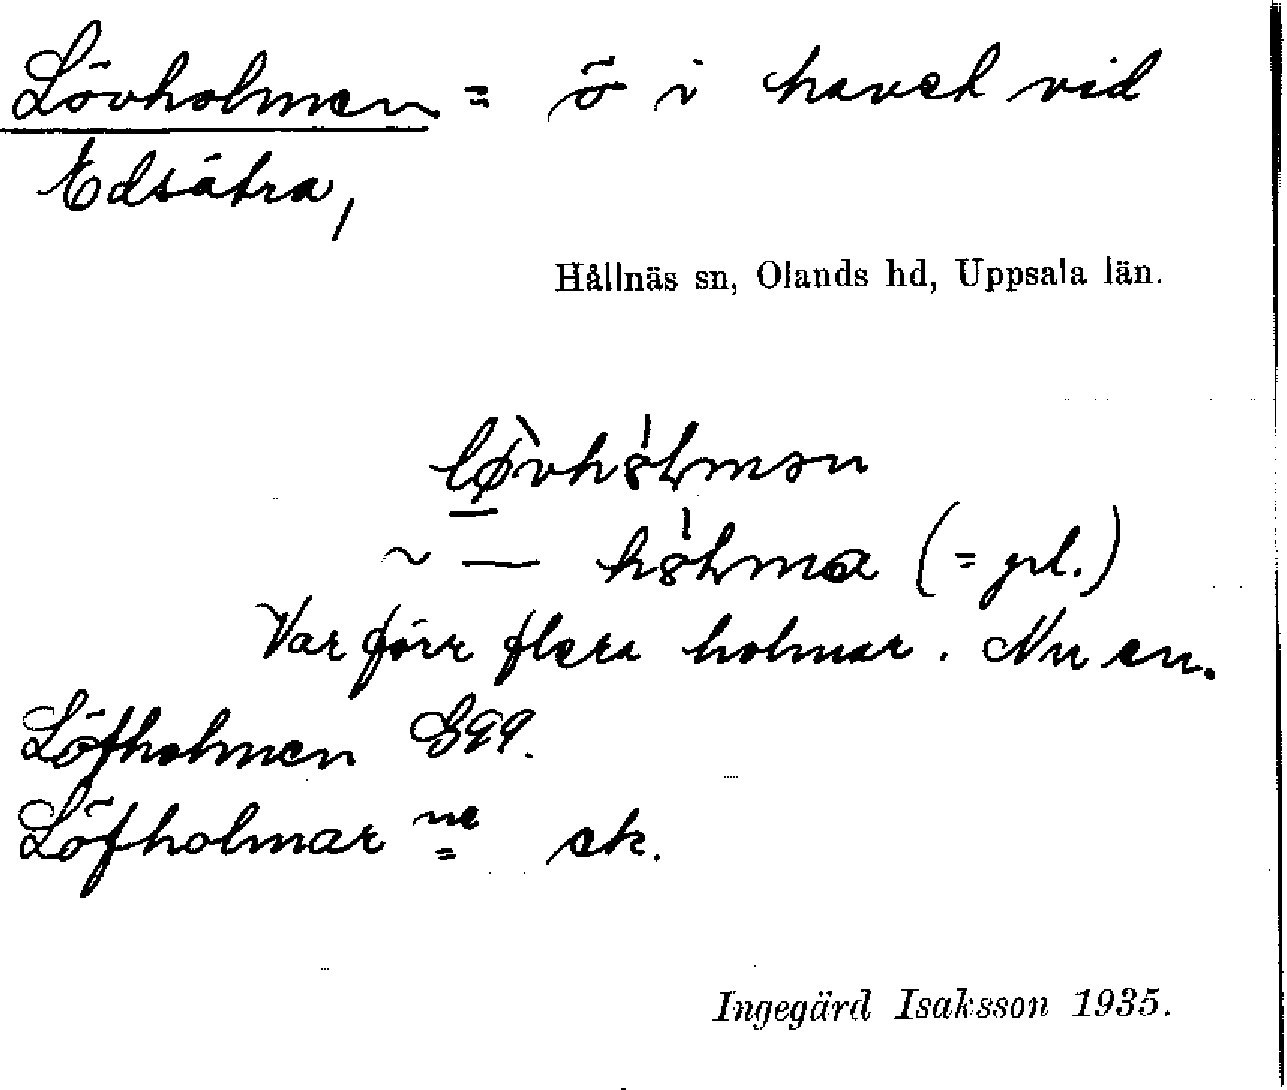 Lövholmen = ö i havet vid
Edsätra,
Hållnäs sn, Olands hd, Uppsala län.
~ — (= pl.)
Var förr flera holmar. Nu en.
Löfholmen
Löfholmarne ek.
Ingegärd Isaksson 1935.